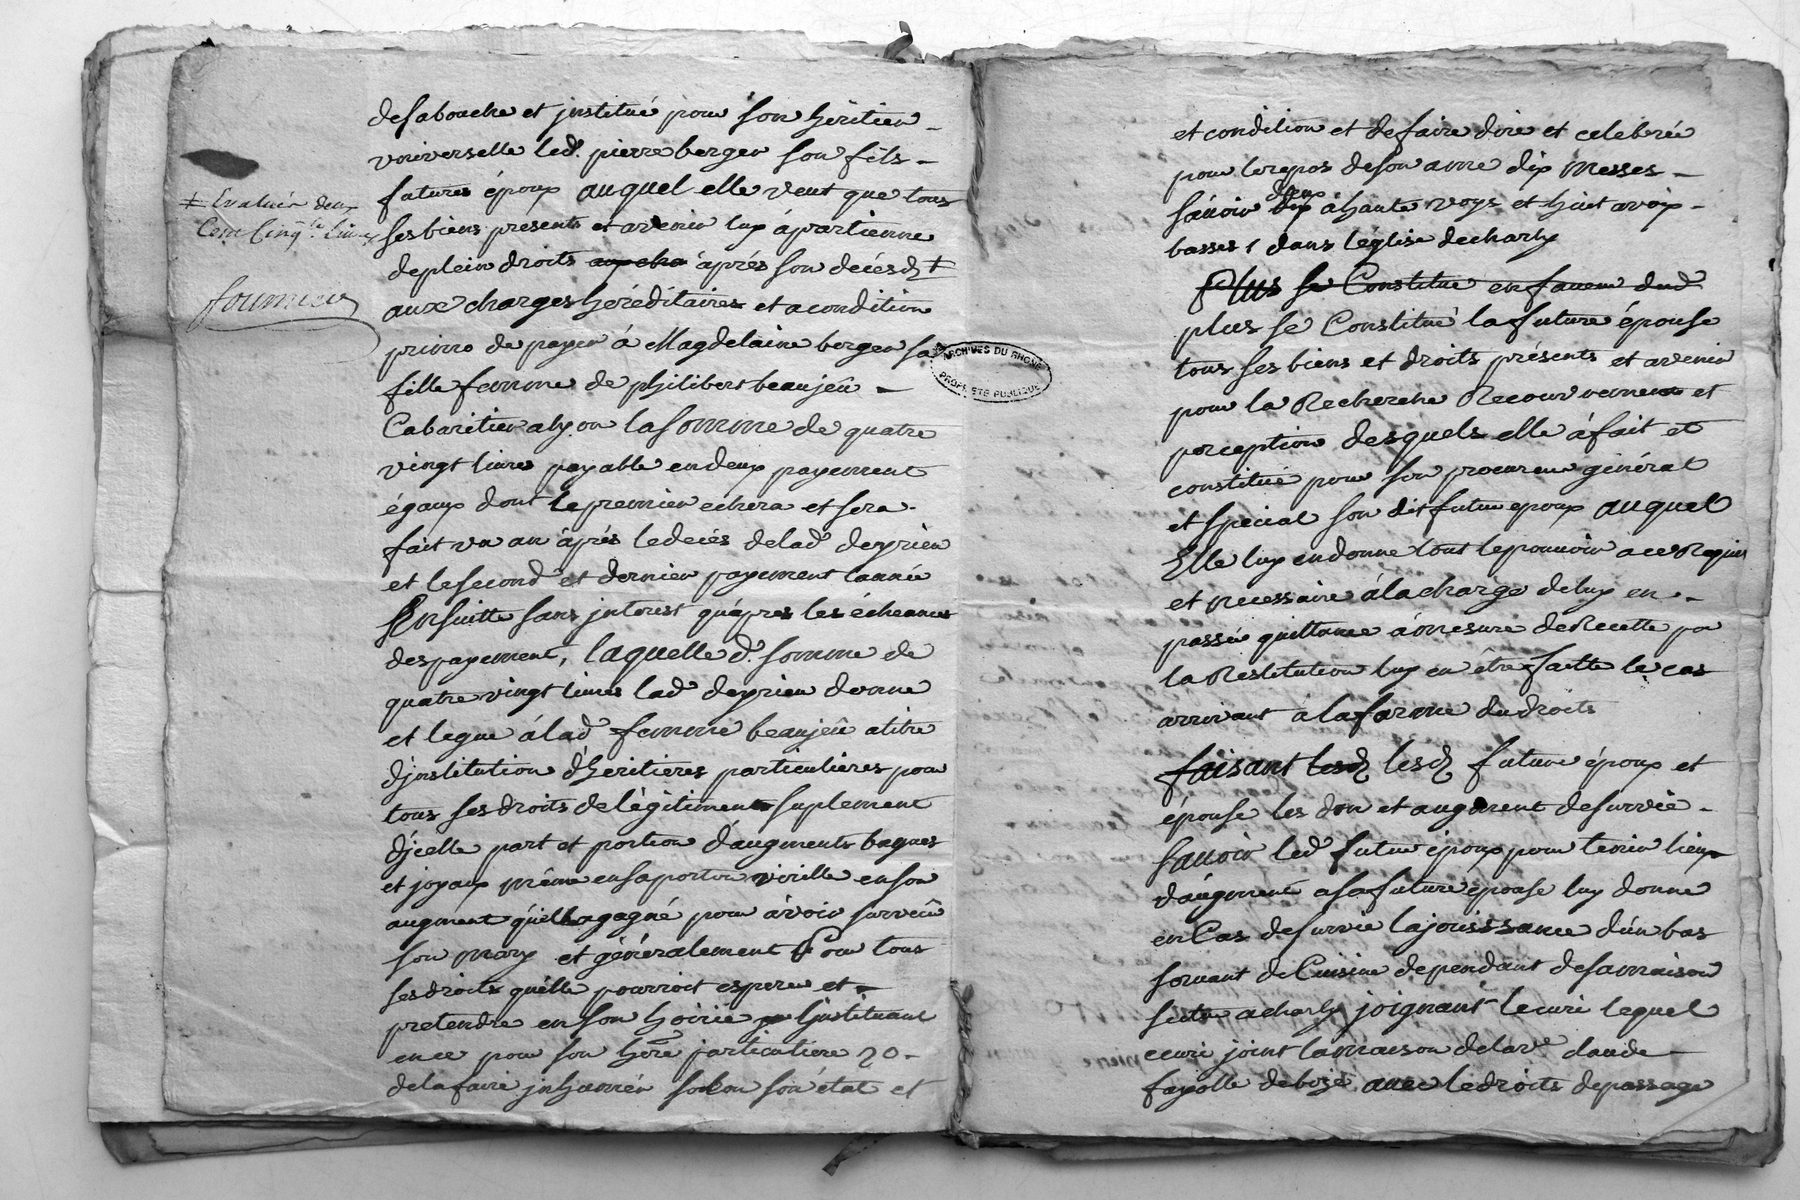 ‡ Evaluér deux
Cent Cinqte. Livres
fournier
desabouche et jnstitué pour son héritier
vniverselle led. pierre berger son fils
futures époux auquel elle veut que tous
ses biens présents et avenir luy ápartienne
deplein droits après son décésd ‡
aux charges héréditaires et acondition
primo de payer á Magdelaine berger sa
fille femme de philibert beaujeû
Cabaritier alyon lasomme de quatre
vingt livres payable endeux payement
égaux dont lepremier echera et sera
fait vn an áprés ledecés delad. deyrieu
et lesecond et dernier payement lannée
Ensuitte sans jnterest qu'apres les écheances
despayement, laquelle d. somme de
quatre vingt livres lad. deyrieu donne
et legue álad. femme beaujeû atitre
djnstitution d'héritieres particulieres pour
tous ses droits delégitiment suplement
djcelle part et portion d'augments bagues
et joyaux même ensaportion virille enson
augment quelleagagné pour ávoir surveçû
son mary et généralement Pour tous
ses droits quélle pourroit esperer et
pretendre en son hoirie Linstituant
ence pour son hére. particuliere 20
delafaire jnhumér selon son état et
ARCHIVES DU RHONE
PROPRIETE PUBLIQUE
et condition et defaire dire et celebrée
pour lerepos deson ame dix Messes
sávoir deux áhaute voys et huit avoix
basses dans léglise decharly
Plus se Constitue enfaveur dud.
plus se Constitué lafuture épouse
tous ses biens et droits présents et avenir
pour la Recherche Recouvrement et
perception desquels elle áfait et
constitué pour son procureur général
et special son dit futur epoux auquel
Elle luy endonne tout lepouvoir acc Requis
et necessaire álacharge deluy en
passér quittance ámesure deRecette pr
la Restitution luy en être faitte le cas
arrivant alaforme dudroits
faisant lesd. lesd. future époux et
épouse les don et augment desurvie
sauoir led. futur époux pour tenir lieux
daúgment asafuture épouse luy donne
en Cas desurvie lajouissance dún bas
servant de Cuisine dependant desamaison
scitée acharly joignant lecurie lequel
ecurie joint lamaison delave. claude
fayolle deboze avec ledroits depassage